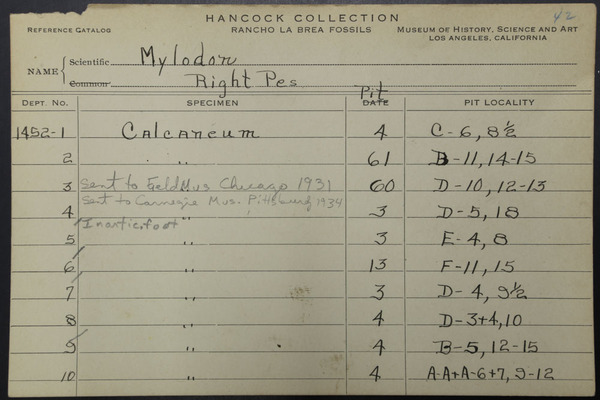 HANCOCK COLLECTION 42
REFERENCE CATALOG RANCHO LA BREA FOSSILS MUSEUM OF HISTORY, SCIENCE AND ART
LOS ANGELES, CALIFORNIA
NAME { Scientific Mylodon
Common Right Pes
Pit
DEPT. NO. SPECIMEN DATE PIT LOCALITY
1452-1 Calcaneum 4 C-6, 8½
2 " 61 B-11, 14-15
3 Sent to Field Mus Chicago 1931 60 D-10, 12-13
Sent to Carnegie Mus. Pittsburg 1934
4 " 3 D-5, 18
In artic. foot
5 " 3 E-4, 8
6 " 13 F-11, 15
7 " 3 D-4, 9½
8 " 4 D-3+4, 10
9 " 4 B-5, 12-15
10 " 4 A-A+A-6+7, 9-12